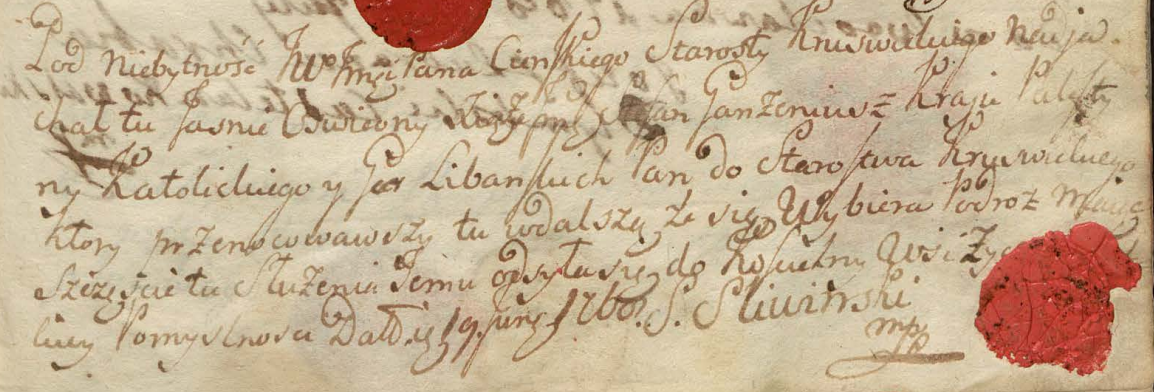 Pod Niebytność JWo Jmci Pana Cieńskiego Starosty Kruswickiego Nadja-
chał tu Jasnie Oswiecony Xiąże Jan Ganżeniusz Kraju Palesty
ny Katolickiego y Gór Libanskich Pan do Starostwa Kruswickiego
ktory przenocowawszy tu wdalszą że się Wybiera Podroż Maiąc
Szczęscie tu Służenia Jemu odsyła się do
Pomyslnosci Dat. d. 19. Juny 1760. S. Sliwinski
mpp